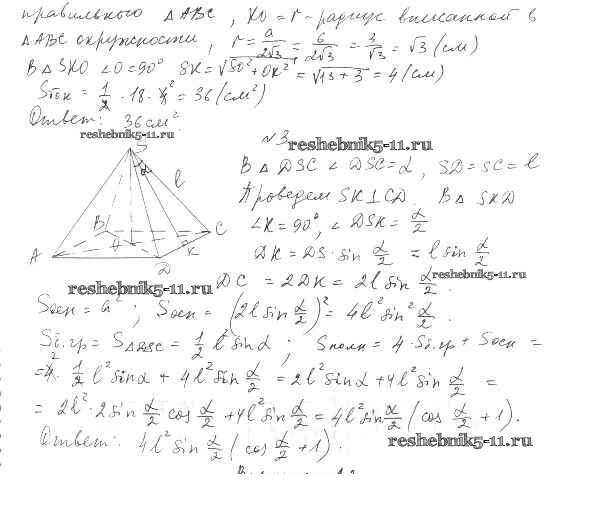 правильного △ABC, KO = r - радиус вписанной в
△ABC окружности, r = a/2√3 = 6/2√3 = 3/√3 = √3 (см)
В △SKO ∠O=90° SK = √SO²+OK² = √13+3 = 4 (см)
Sбок = 1/2 · 18 · 4 = 36 (см²)
Ответ: 36 см².
reshebnik5-11.ru
№3
reshebnik5-11.ru
В △DSC ∠DSC=α, SD=SC=l
Проведем SK⊥CD. В △SKD
∠K=90°, ∠DSK=α/2
DK = DS·sin α/2 = l sin α/2
reshebnik5-11.ru
S
α
l
B
C
A
K
D
reshebnik5-11.ru
DC = 2DK = 2l sin α/2.
Sосн = a²; Sосн = (2l sin α/2)² = 4l² sin² α/2.
Sб.гр = S△DSC = 1/2 l² sin α; Sполн = 4·Sб.гр + Sосн =
=4· 1/2 l² sin α + 4l² sin α/2 = 2l² sin α + 4l² sin α/2 =
= 2l²·2sin α/2 cos α/2 + 4l² sin α/2 = 4l² sin α/2 (cos α/2 + 1).
Ответ: 4l² sin α/2 (cos α/2 + 1).
reshebnik5-11.ru